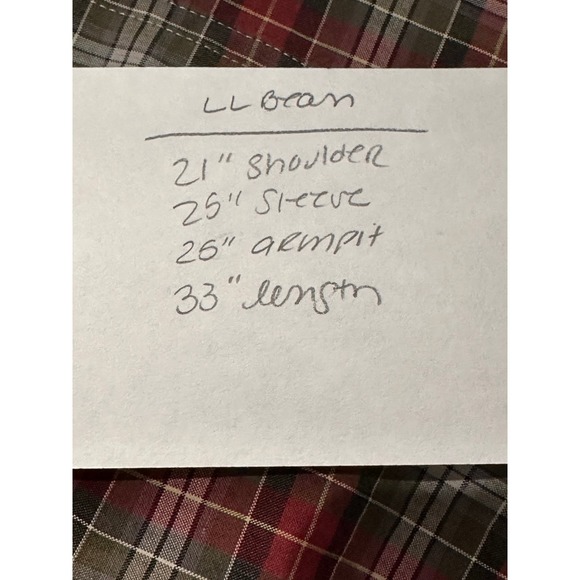 LL Bean
21" shoulder
25" Sleeve
26" armpit
33" length